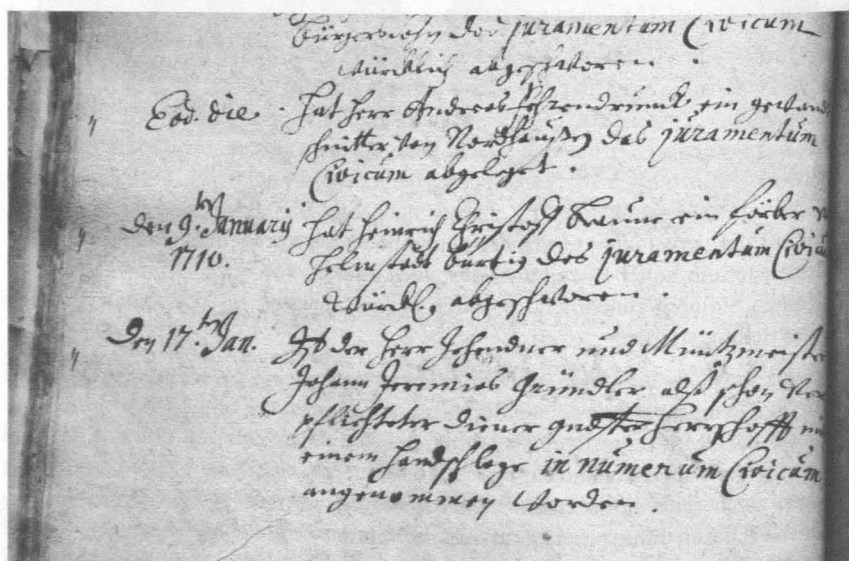 das juramentum Civicum
würcklich abgeschworen.
" Eod. die. hat Herr Andreas ein gewand
schnitter von Nordhaußen das juramentum
Civicum abgeleget.
" den 9.ten Januarij hat Heinrich Christoff Braune ein färber
1710. Helmstedt bürtig das juramentum Civic
würckl. abgeschworen.
" Den 17.ten Jan. Ist der Herr und Müntzmeiste
Johann Jeremias Gründler alß schon ver
pflichteter diener gndster Herrschafft mi
einem handschlage in numerum Civicum
angenommen worden.